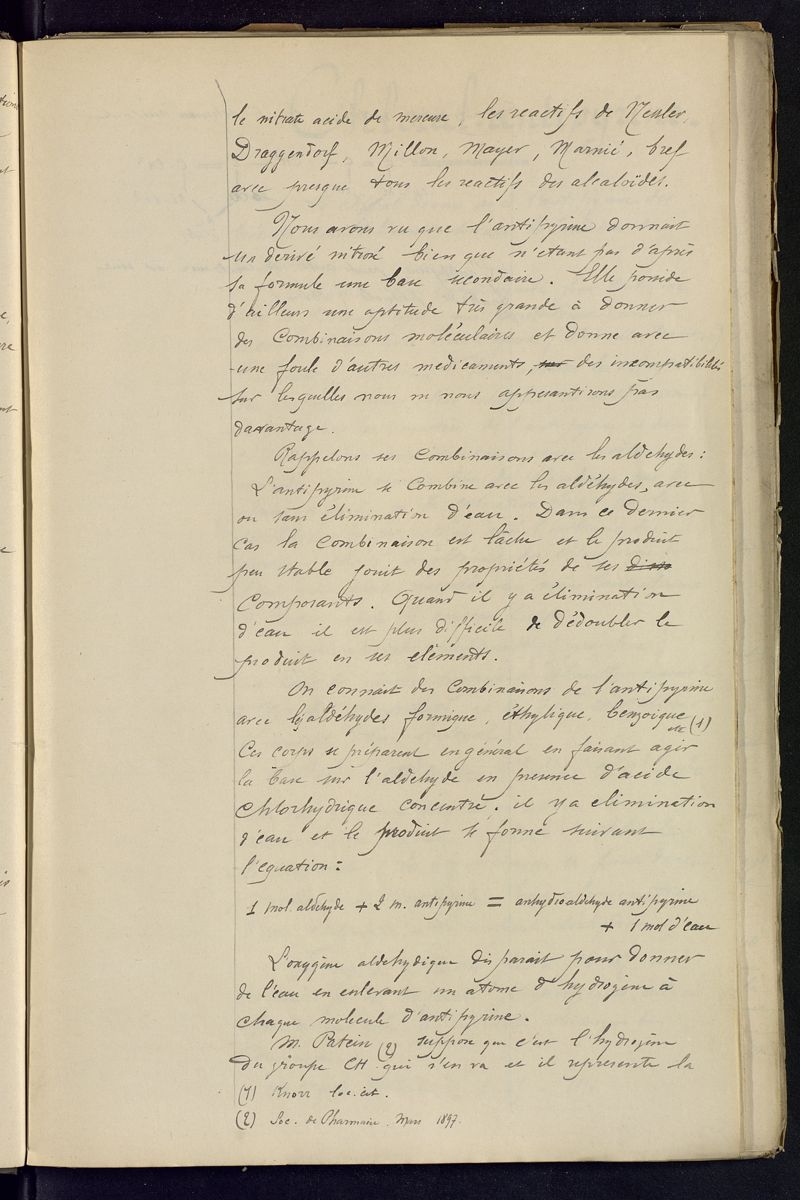 le nitrate acide de mercure, les reactifs de Nessler,
Draggendorf, Millon, Mayer, Marmé, bref
avec presque tous les reactifs des alcaloïdes.
Nous avons vu que l'antipyrine donnait
un derivé nitrosé bien que n'étant pas d'après
sa formule une base secondaire. Elle possede
d'ailleurs une aptitude très grande à donner
des combinaisons moléculaires et donne avec
une foule d'autres medicaments, des incompatibilités
sur lesquelles nous ne nous appesantirons pas
davantage.
Rappelons ses combinaisons avec les aldehydes :
L'antipyrine se combine avec les aldéhydes, avec
ou sans élimination d'eau. Dans ce dernier
cas la combinaison est lâche et le produit
peu stable jouit des propriétés de ses
composants. Quand il y a élimination
d'eau il est plus difficile de dédoubler le
produit en ses eléments.
On connait des combinaisons de l'antipyrine
avec les aldéhydes formique, éthylique, benzoique etc (1)
Ces corps se préparent en général en faisant agir
la base sur l'aldehyde en presence d'acide
chlorhydrique concentré. il y a elimination
d'eau et le produit se forme suivant
l'equation :
1 mol. aldehyde + 2 m. antipyrine = anhydroaldehyde antipyrine
+ 1 mol d'eau
L'oxygène aldehydique disparait pour donner
de l'eau en enlevant un atome d'hydrogène à
chaque molecule d'antipyrine.
M. Patein (2) suppose que c'est l'hydrogène
du groupe CH qui s'en va et il represente la
(1) Knorr loc. cit.
(2) Soc. de Pharmacie. Mars 1897.